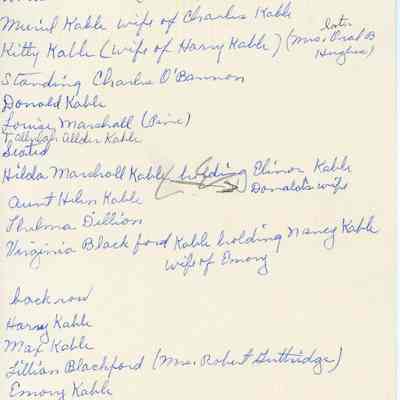 Muriel Kable wife of Charles Kable
later
Kitty Kable (wife of Harry Kable) (Mrs. Oral B
Hughes)
Standing Charles O'Bannon
Donald Kable
Louise Marshall (Pine)
Allder Kable
Seated
Hilda Marshall Kable holding Elinor Kable
Donald's wife
Aunt Helen Kable
Thelma Dillion
Virginia Blackford Kable holding Nancy Kable
wife of Emory
back row
Harry Kable
Max Kable
Lillian Blackford (Mrs. Robert Guthridge)
Emory Kable